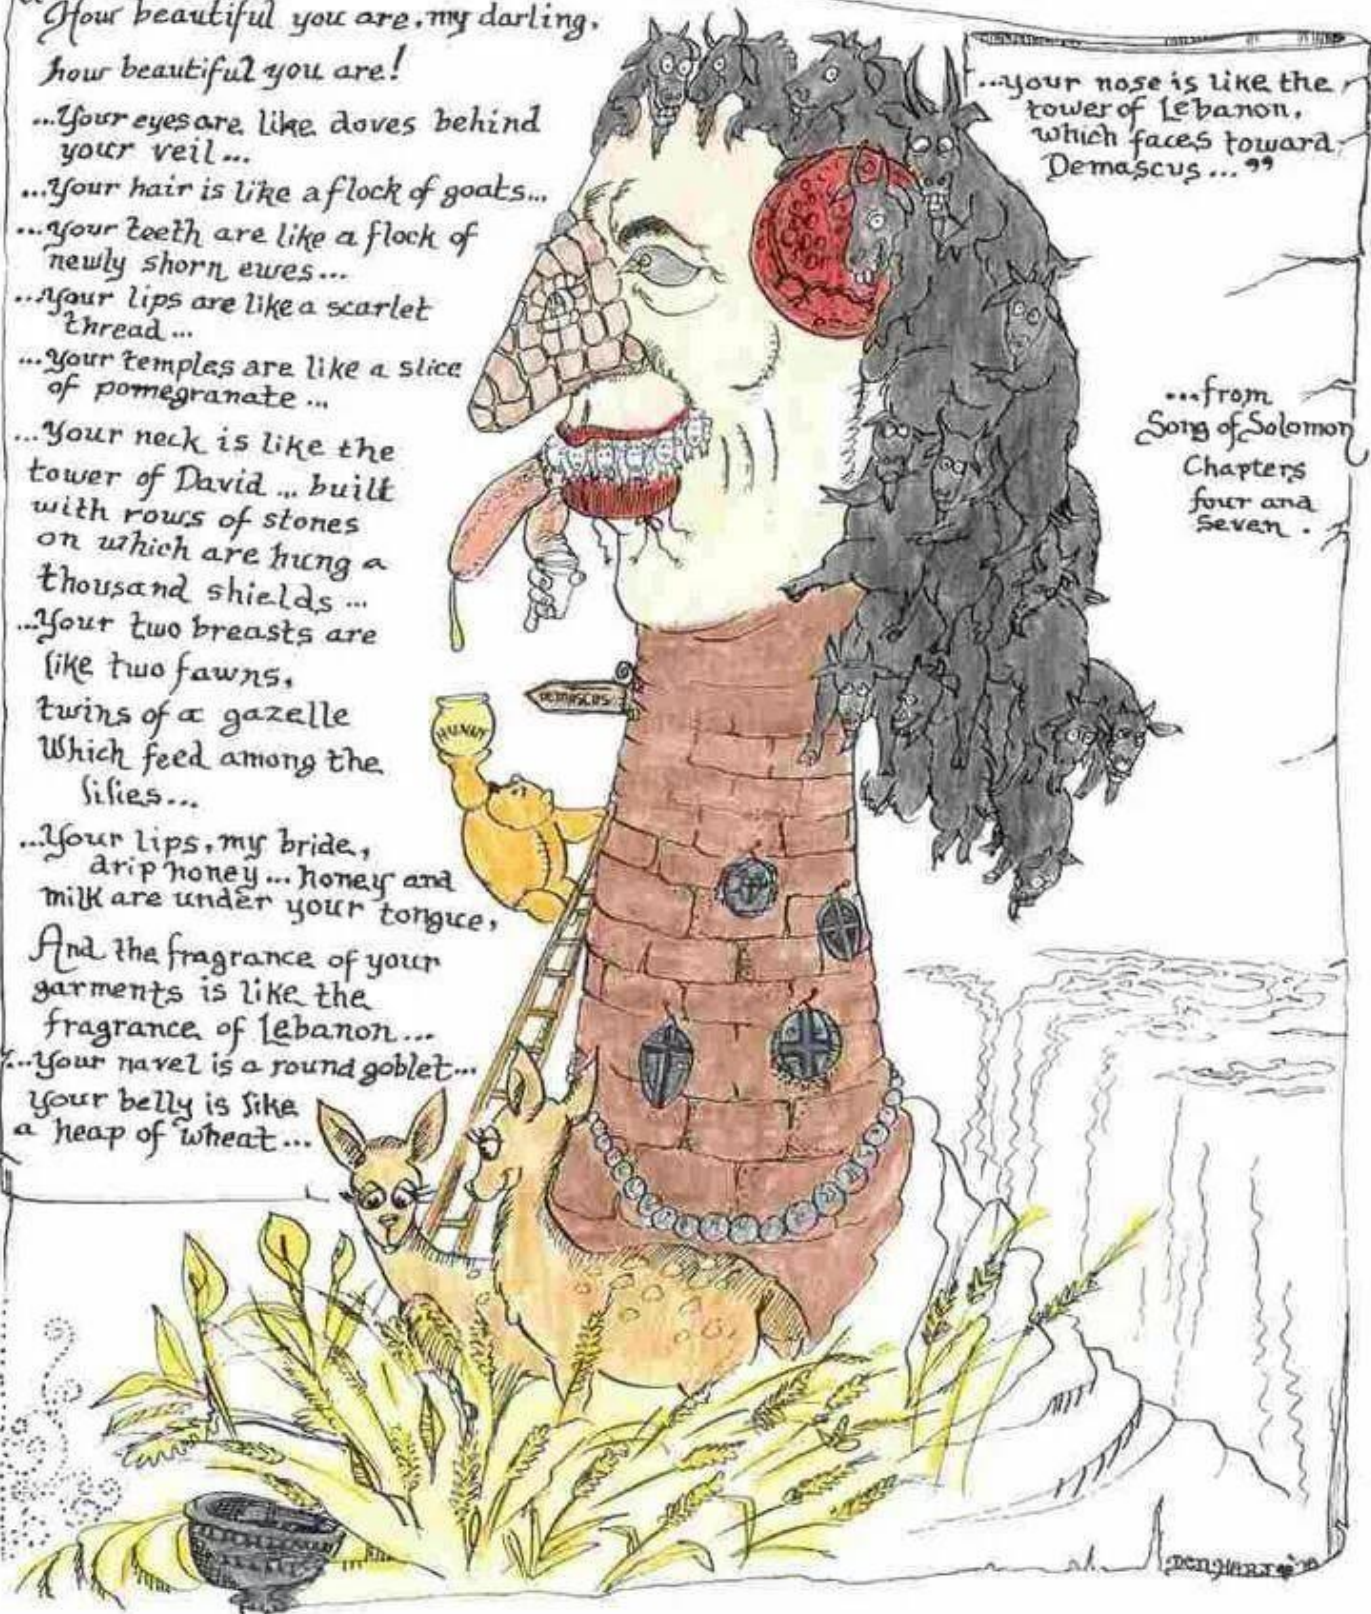 “How beautiful you are, my darling,
how beautiful you are!
...Your eyes are like doves behind
your veil...
...Your hair is like a flock of goats...
...your teeth are like a flock of
newly shorn ewes...
...your lips are like a scarlet
thread...
...your temples are like a slice
of pomegranate...
...Your neck is like the
tower of David ... built
with rows of stones
on which are hung a
thousand shields...
...Your two breasts are
like two fawns,
twins of a gazelle
Which feed among the
lilies...
...Your lips, my bride,
drip honey... honey and
milk are under your tongue,
And the fragrance of your
garments is like the
fragrance of Lebanon...
...Your navel is a round goblet...
your belly is like
a heap of wheat...
...your nose is like the
tower of Lebanon,
which faces toward
Demascus...”
...from
Song of Solomon
Chapters
four and
Seven.
DEMASCUS
HUNNY
DEN HART